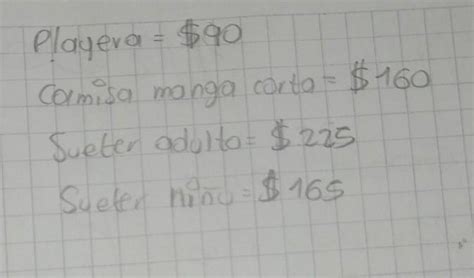 Playera = $90
Camisa manga corta = $160
Sueter adulto = $225
Sueter niño = $165